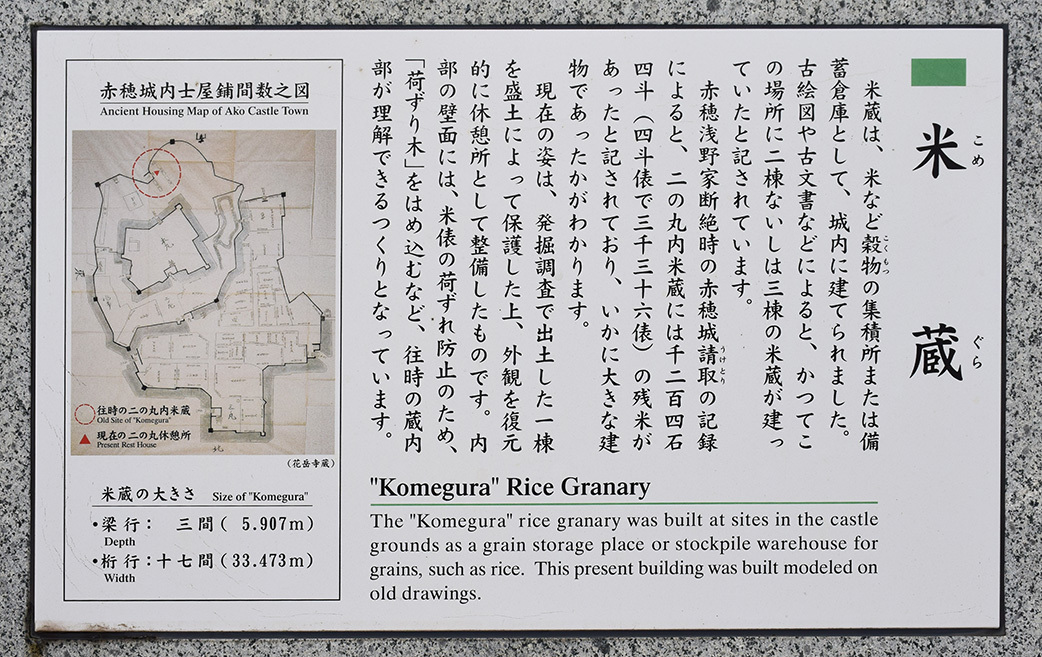 米蔵
こめ
ぐら
米蔵は、米など穀物の集積所または備
こくもつ
蓄倉庫として、城内に建てられました。
古絵図や古文書などによると、かつてこ
の場所に二棟ないしは三棟の米蔵が建っ
ていたと記されています。
赤穂浅野家断絶時の赤穂城請取の記録
うけとり
によると、二の丸内米蔵には千二百四石
四斗（四斗俵で三千三十六俵）の残米が
あったと記されており、いかに大きな建
物であったかがわかります。
現在の姿は、発掘調査で出土した一棟
を盛土によって保護した上、外観を復元
的に休憩所として整備したものです。内
部の壁面には、米俵の荷ずれ防止のため、
「荷ずり木」をはめ込むなど、往時の蔵内
部が理解できるつくりとなっています。
"Komegura" Rice Granary
The "Komegura" rice granary was built at sites in the castle
grounds as a grain storage place or stockpile warehouse for
grains, such as rice. This present building was built modeled on
old drawings.
赤穂城内士屋鋪間数之図
Ancient Housing Map of Ako Castle Town
往時の二の丸内米蔵
Old Site of "Komegura"
現在の二の丸休憩所
Present Rest House
（花岳寺蔵）
米蔵の大きさ Size of "Komegura"
・梁行： 三間( 5.907m)
Depth
・桁行：十七間(33.473m)
Width